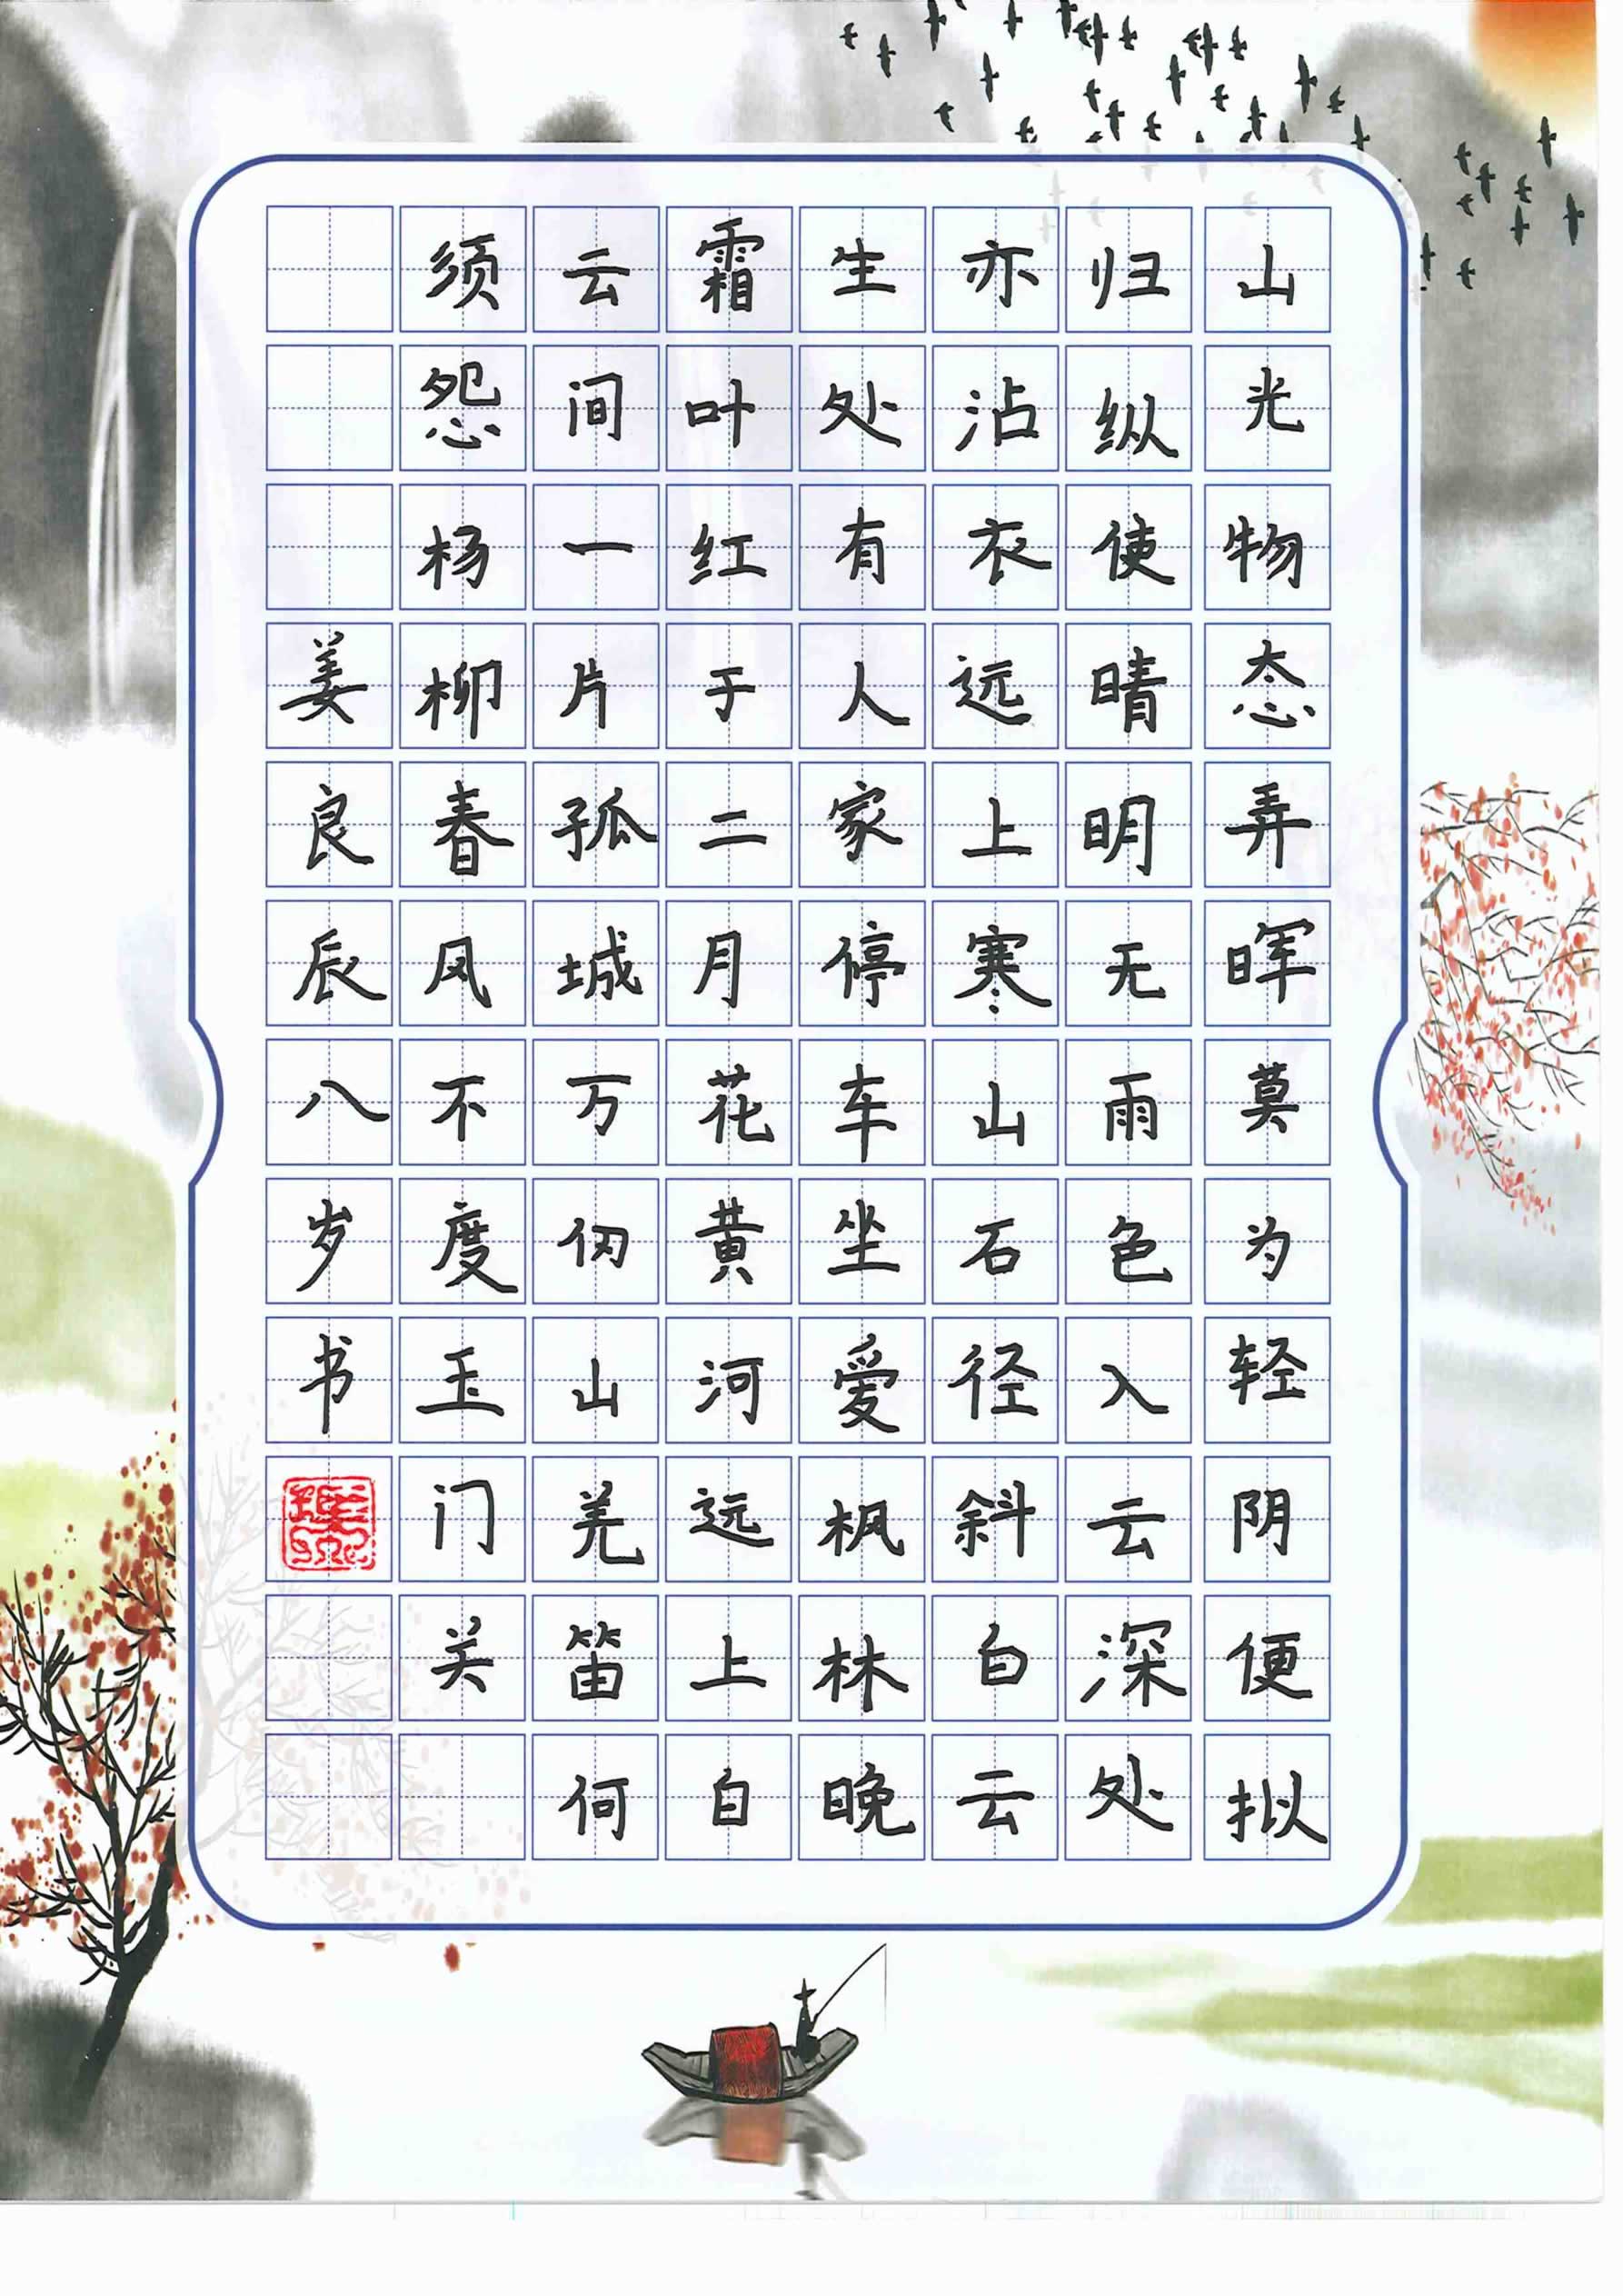 山光物态弄晖莫为轻阴便拟
归纵使晴明无雨色入云深处
亦沾衣远上寒山石径斜白云
生处有人家停车坐爱枫林晚
霜叶红于二月花黄河远上白
云间一片孤城万仞山羌笛何
须怨杨柳春风不度玉门关
姜良辰八岁书